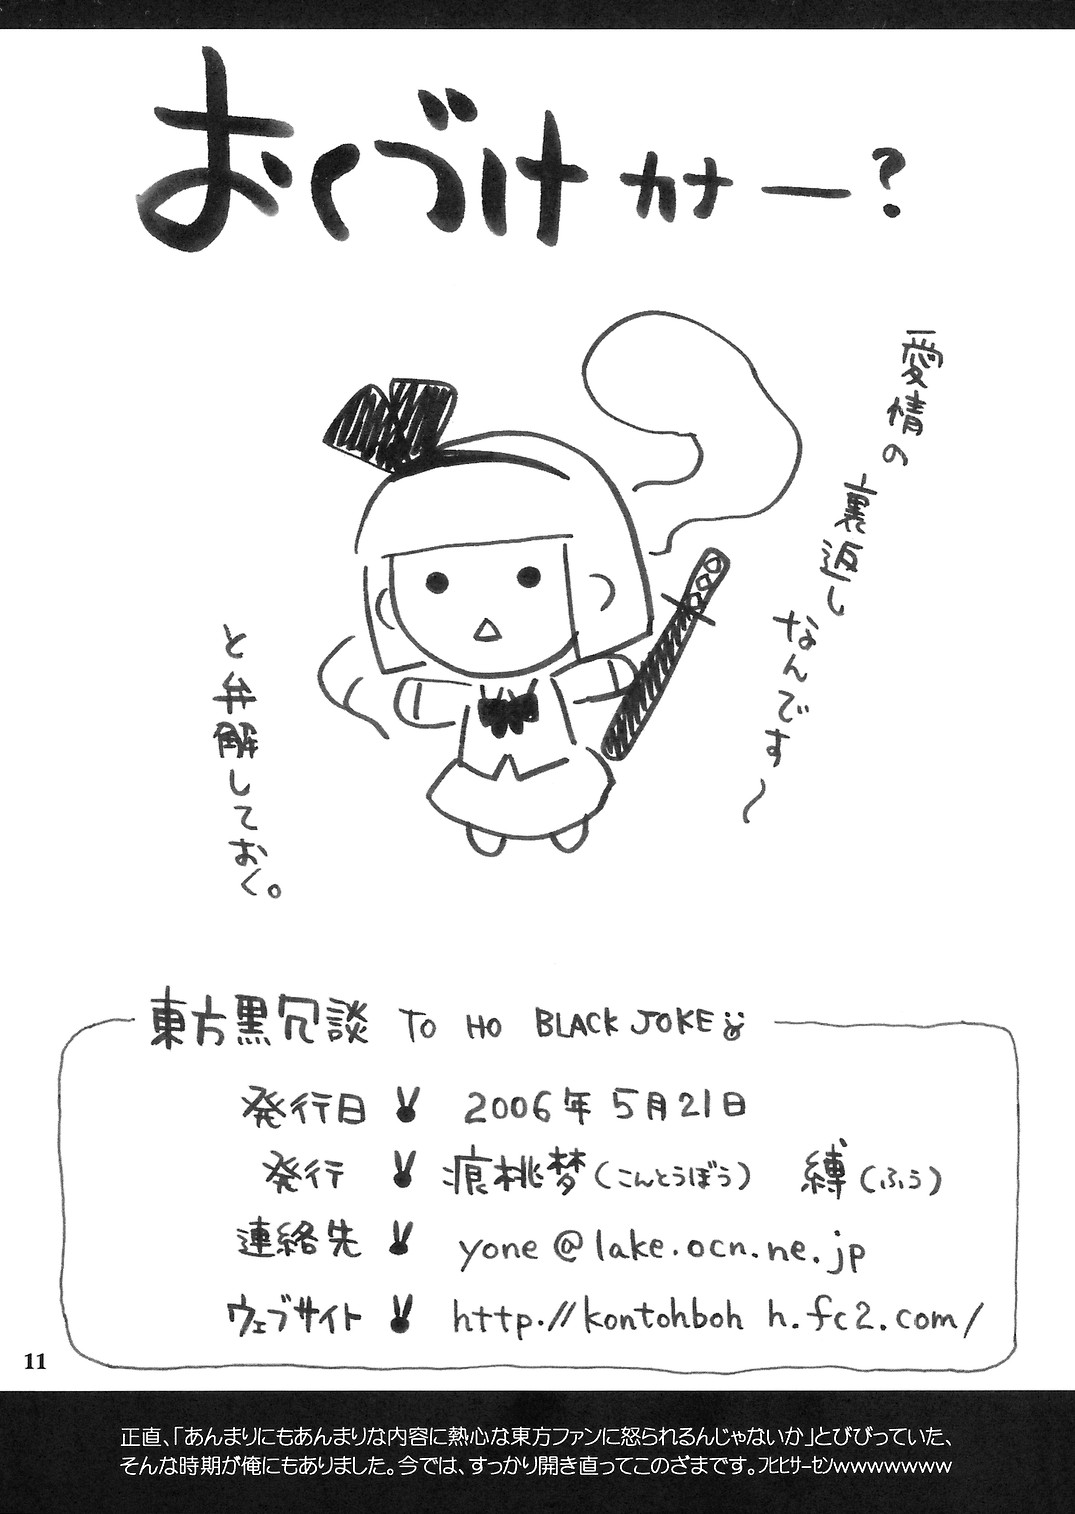 おくづけ カナー?
愛情の
裏返し
なんです〜
と弁解しておく。
東方黒冗談 TO HO BLACK JOKE
発行日 2006年 5月21日
発行 痕桃夢(こんとうぼう) 縛(ふう)
連絡先 yone@lake.ocn.ne.jp
ウェブサイト http://kontohboh h.fc2.com/
11
正直、「あんまりにもあんまりな内容に熱心な東方ファンに怒られるんじゃないか」とびびっていた、
そんな時期が俺にもありました。今では、すっかり開き直ってこのざまです。ﾌﾋﾋｻｰｾﾝwwwwwww